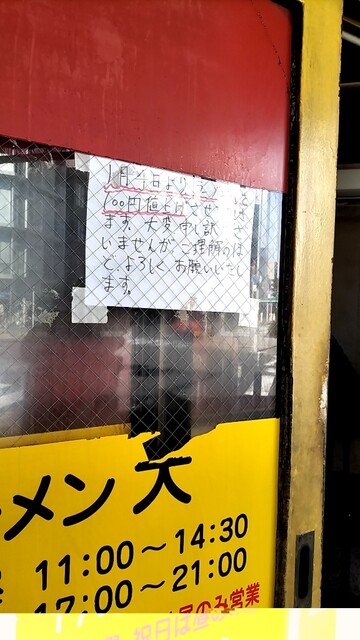 1月4日より
100円値上げさせ
ます。大変申し訳
いませんがご理解のほ
ど、よろしくお願いいたし
ます。
ーメン 大
11:00～14:30
17:00～21:00
祝日は昼のみ営業